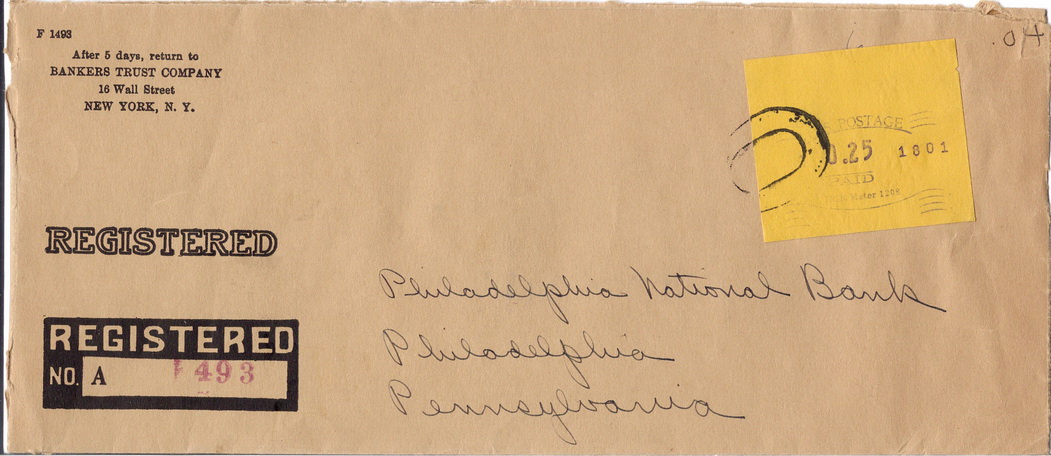 F 1493
After 5 days, return to
BANKERS TRUST COMPANY
16 Wall Street
NEW YORK, N. Y.
.04
POSTAGE
0.25 1801
PAID
Meter
REGISTERED
Philadelphia National Bank
Philadelphia
Pennsylvania
REGISTERED
NO. A 493